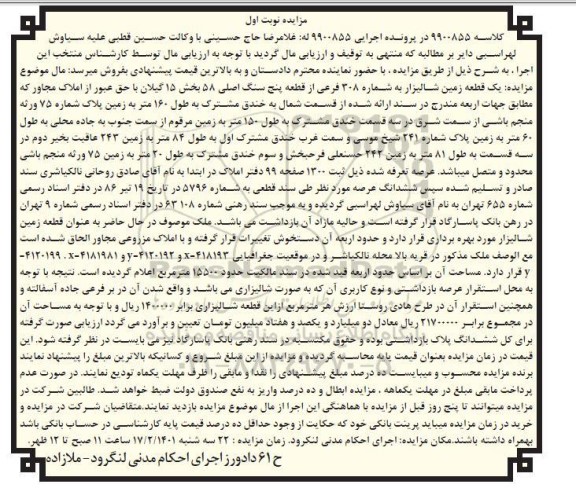 مزایده نوبت اول
کلاسه ۹۹۰۰۸۵۵ در پرونده اجرایی ۹۹۰۰۸۵۵ له: غلامرضا حاج حسینی با وکالت حسین قطبی علیه سیاوش
لهراسبی دایر بر مطالبه که منتهی به توقیف و ارزیابی مال گردید با توجه به ارزیابی مال توسط کارشناس منتخب این
اجرا، به شرح ذیل از طریق مزایده، با حضور نماینده محترم دادستان و به بالاترین قیمت پیشنهادی بفروش میرسد: مال موضوع
مزایده: یک قطعه زمین شالیزار به شماره ۳۰۸ فرعی از قطعه پنج سنگ اصلی ۵۸ بخش ۱۵ گیلان با حق عبور از املاک مجاور که
مطابق جهات اربعه مندرج در سند ارائه شده از قسمت شمال به خندق مشترک به طول ۱۶۰ متر به زمین پلاک شماره ۷۵ ورثه
منجم باشی از سمت شرق در سه قسمت خندق مشترک به طول ۱۵۰ متر به زمین مرقوم از سمت جنوب به جاده محلی به طول
۶۰ متر به زمین پلاک شماره ۲۴۱ شیخ موسی و سمت غرب خندق مشترک اول به طول ۸۴ متر به زمین ۲۴۳ عاقبت بخیر دوم در
سه قسمت به طول ۸۱ متر به زمین ۲۴۲ حسنعلی فرحبخش و سوم خندق مشترک به طول ۲۰ متر به زمین ۷۵ ورثه منجم باشی
محدود و متصل میباشد. عرصه تعرفه شده ذیل ثبت ۱۳۰۰ صفحه ۹۹ دفتر املاک در ابتدا به نام آقای صادق روحانی تالکیاشری سند
صادر و تسلیم شده سپس ششدانگ عرصه مورد نظر طی سند قطعی به شماره ۵۷۹۶ در تاریخ ۱۹ تیر ۸۶ در دفتر اسناد رسمی
شماره ۶۵۵ تهران به نام آقای سیاوش لهراسبی گردیده و به موجب سند رهنی شماره ۱۰۸ ۶۳ در دفتر اسناد رسمی شماره ۹ تهران
در رهن بانک پاسارگاد قرار گرفته است و حالیه مازاد آن بازداشت می باشد. ملک موصوف در حال حاضر به عنوان قطعه زمین
شالیزار مورد بهره برداری قرار دارد و حدود اربعه آن دستخوش تغییرات قرار گرفته و با املاک مزروعی مجاور الحاق شده است
مع الوصف ملک مذکور در قریه بالا محله تالکیاشر و در موقعیت جغرافیایی x-۴۱۸۱۹۳ و y-۴۱۲۰۱۹۲ و x-۴۱۸۱۹۸۱ و ۴۱۲۰۱۹۹-
y قرار دارد. مساحت آن بر اساس حدود اربعه قید شده در سند مالکیت حدود ۱۵۵۰۰ مترمربع اعلام گردیده است. نتیجه با توجه
به محل استقرار عرصه بازداشتی و نوع کاربری آن که به صورت شالیزاری می باشد و واقع شدن آن در بر فرعی جاده آسفالته و
همچنین استقرار آن در طرح هادی روستا ارزش هر مترمربع ازاین قطعه شالیزاری برابر ۱۴۰۰۰۰۰ ریال و با توجه به مساحت آن
در مجموع برابر ۲۱۷۰۰۰۰۰ ریال معادل دو میلیارد و یکصد و هفتاد میلیون تومان تعیین و برآورد می گردد ارزیابی صورت گرفته
برای کل ششدانگ پلاک بازداشتی بوده و حقوق یکتسبه در سند رهنی بانک پاسارگاد نیز می بایست در نظر گرفته شود. این
قیمت در زمان مزایده بعنوان قیمت پایه محاسبه گردیده و مزایده از این مبلغ شروع و کسانیکه بالاترین مبلغ را پیشنهاد نمایند
برنده مزایده محسوب و میبایست ده درصد مبلغ پیشنهادی را نقدا و مابقی را ظرف مهلت یکماه تودیع نمایند. در صورت عدم
پرداخت مابقی مبلغ در مهلت یکماهه، مزایده ابطال و ده درصد واریز به نفع صندوق دولت ضبط خواهد شد. طالبین شرکت در
مزایده میتوانند تا پنج روز قبل از مزایده با هماهنگی این اجرا از مال موضوع مزایده بازدید نمایند.متقاضیان شرکت در مزایده و
خرید در زمان مزایده میباید پرینت بانکی خود که حکایت از وجود حداقل ده درصد قیمت پایه کارشناسی در حساب بانکی باشد
بهمراه داشته باشند.مکان مزایده: اجرای احکام مدنی لنگرود. زمان مزایده : ۲۲ سه شنبه ۱۷/۲/۱۴۰۱ ساعت ۱۱ صبح تا ۱۲ ظهر.
ح ۶۱ دادورز اجرای احکام مدنی لنگرود - ملازاده